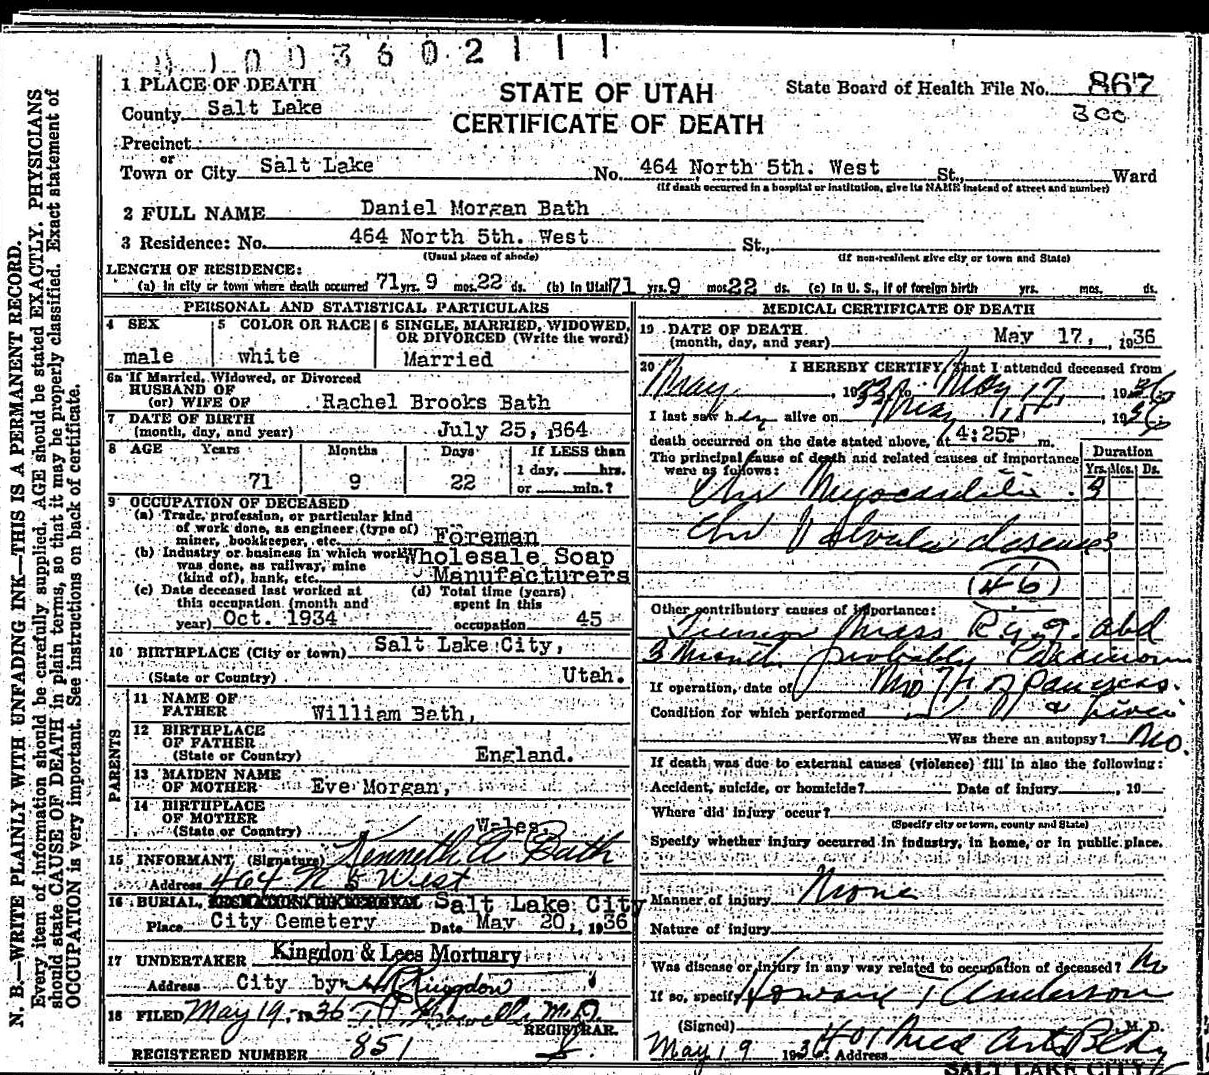 0100360211 1
1 PLACE OF DEATH
STATE OF UTAH
CERTIFICATE OF DEATH
State Board of Health File No. 867
300
County Salt Lake
Precinct
or
Town or City Salt Lake No. 464 North 5th. West St., Ward
(If death occurred in a hospital or institution, give its NAME instead of street and number)
2 FULL NAME Daniel Morgan Bath
3 Residence: No. 464 North 5th. West St.,
(Usual place of abode) (If non-resident give city or town and State)
LENGTH OF RESIDENCE:
(a) In city or town where death occurred 71 yrs. 9 mos. 22 ds. (b) In Utah 71 yrs. 9 mos. 22 ds. (c) In U. S., if of foreign birth yrs. mos. ds.
PERSONAL AND STATISTICAL PARTICULARS
4 SEX
male
5 COLOR OR RACE
white
6 SINGLE, MARRIED, WIDOWED, OR DIVORCED (Write the word)
Married
6a If Married, Widowed, or Divorced
HUSBAND OF
(or) WIFE OF Rachel Brooks Bath
7 DATE OF BIRTH
(month, day, and year) July 25, 1864
8 AGE Years Months Days If LESS than
1 day, hrs.
71 9 22 or min.?
9 OCCUPATION OF DECEASED
(a) Trade, profession, or particular kind
of work done, as engineer (type of)
miner, bookkeeper, etc. Foreman
(b) Industry or business in which work Wholesale Soap
was done, as railway, mine
(kind of), bank, etc. Manufacturers
(c) Date deceased last worked at
this occupation (month and
year) Oct. 1934
(d) Total time (years)
spent in this
occupation 45
10 BIRTHPLACE (City or town) Salt Lake City,
(State or Country) Utah.
PARENTS
11 NAME OF
FATHER William Bath,
12 BIRTHPLACE
OF FATHER
(State or Country) England.
13 MAIDEN NAME
OF MOTHER Eve Morgan,
14 BIRTHPLACE
OF MOTHER
(State or Country) Wales.
15 INFORMANT (Signature) Kenneth A Bath
Address 464 N 5 West
16 BURIAL, CREMATION OR REMOVAL Salt Lake City
Place City Cemetery Date May 20, 1936
17 UNDERTAKER Kingdon & Lees Mortuary
Address City by Kingdon
18 FILED May 19, 1936 M.D.
REGISTRAR.
REGISTERED NUMBER 851
MEDICAL CERTIFICATE OF DEATH
19 DATE OF DEATH
(month, day, and year) May 17, 1936
20 I HEREBY CERTIFY, That I attended deceased from
May 1933 to May 17, 1936
I last saw him alive on May 15 1936
death occurred on the date stated above, at 4:25P m.
The principal cause of death and related causes of importance
were as follows:
Duration
Yrs. Mos. Ds.
Chr Myocarditis 3
Chr Valvular disease 3
46
Other contributory causes of importance:
Tumor Mass Rig. abd
3 Month probably Carcinoma
of pancreas
If operation, date of No
Condition for which performed
Was there an autopsy? No.
If death was due to external causes (violence) fill in also the following:
Accident, suicide, or homicide? Date of injury , 19
Where did injury occur?
(Specify city or town, county and State)
Specify whether injury occurred in industry, in home, or in public place.
Manner of injury None
Nature of injury
Was disease or injury in any way related to occupation of deceased? No
If so, specify Howard T Anderson
(Signed) M. D.
May 19 1936 Address 401 Med Arts Bldg
SALT LAKE CITY
N. B.—WRITE PLAINLY WITH UNFADING INK—THIS IS A PERMANENT RECORD.
Every item of information should be carefully supplied. AGE should be stated EXACTLY. PHYSICIANS
should state CAUSE OF DEATH in plain terms, so that it may be properly classified. Exact statement of
OCCUPATION is very important. See instructions on back of certificate.